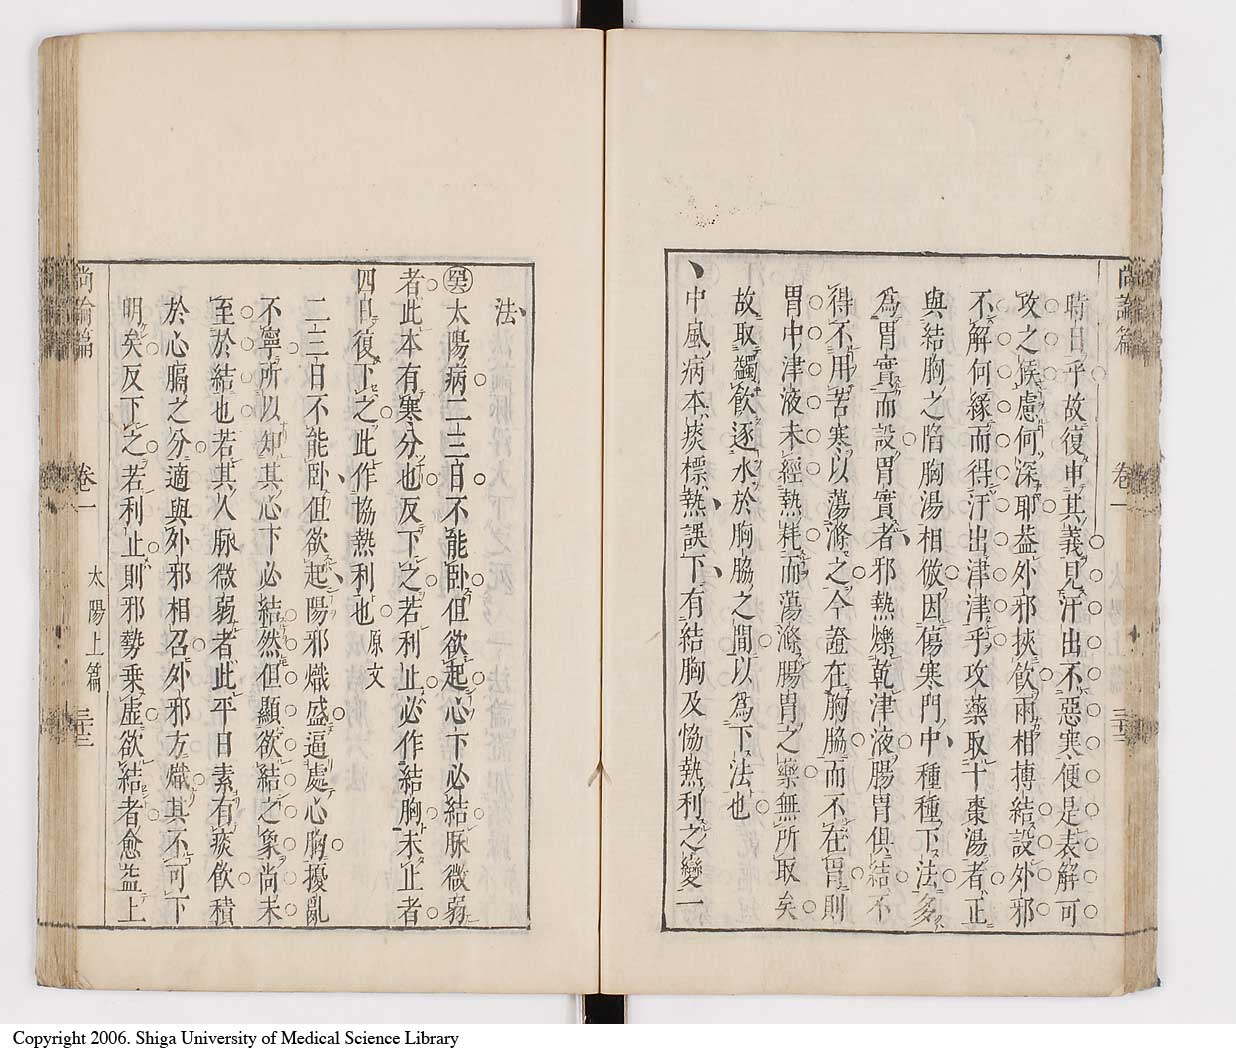 尚論篇　卷一
時日乎故復申其義見汗出不惡寒便是表解可
攻之候慮何深耶葢外邪挾飮兩相搏結設外邪
不解何緣而得汗出津津乎攻藥取十棗湯者正
與結胸之陷胸湯相倣因傷寒門中種種下法多
爲胃實而設胃實者邪熱爍乾津液腸胃俱結不
得不用苦寒以蕩滌之今證在胸脇而不在胃則
胃中津液未經熱耗而蕩滌腸胃之藥無所取矣
故取蠲飮逐水於胸脇之間以爲下法也
中風病本痰標熱誤下有結胸及恊熱利之變一
法
太陽病二三日不能臥但欲起心下必結脈微弱
者此本有寒分也反下之若利止必作結胸未止者
四日復下之此作協熱利也 原文
二三日不能臥但欲起陽邪熾盛逼處心胸擾亂
不寧所以知其心下必結然但顯欲結之象尚未
至於結也若其人脈微弱者此平日素有痰飮積
於心膈之分適與外邪相召外邪方熾其不可下
明矣反下之若利止則邪勢乗虛欲結者愈益上
尚論篇　卷一　太陽上篇